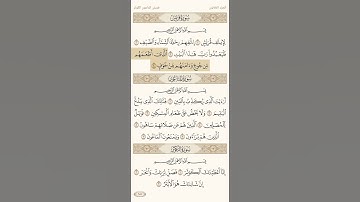 الجزء الثلاثون
سُورَةُ قُرَيْشٍ
بِسْمِ ٱللَّهِ ٱلرَّحْمَٰنِ ٱلرَّحِيمِ
لِإِيلَٰفِ قُرَيْشٍ ١ إِۦلَٰفِهِمْ رِحْلَةَ ٱلشِّتَآءِ وَٱلصَّيْفِ ٢
فَلْيَعْبُدُوا۟ رَبَّ هَٰذَا ٱلْبَيْتِ ٣ ٱلَّذِىٓ أَطْعَمَهُم
مِّن جُوعٍ وَءَامَنَهُم مِّنْ خَوْفٍۭ ٤
سُورَةُ ٱلْمَاعُونِ
بِسْمِ ٱللَّهِ ٱلرَّحْمَٰنِ ٱلرَّحِيمِ
أَرَءَيْتَ ٱلَّذِى يُكَذِّبُ بِٱلدِّينِ ١ فَذَٰلِكَ ٱلَّذِى يَدُعُّ
ٱلْيَتِيمَ ٢ وَلَا يَحُضُّ عَلَىٰ طَعَامِ ٱلْمِسْكِينِ ٣ فَوَيْلٌ
لِّلْمُصَلِّينَ ٤ ٱلَّذِينَ هُمْ عَن صَلَاتِهِمْ سَاهُونَ ٥
ٱلَّذِينَ هُمْ يُرَآءُونَ ٦ وَيَمْنَعُونَ ٱلْمَاعُونَ ٧
سُورَةُ ٱلْكَوْثَرِ
بِسْمِ ٱللَّهِ ٱلرَّحْمَٰنِ ٱلرَّحِيمِ
إِنَّآ أَعْطَيْنَٰكَ ٱلْكَوْثَرَ ١ فَصَلِّ لِرَبِّكَ وَٱنْحَرْ ٢
إِنَّ شَانِئَكَ هُوَ ٱلْأَبْتَرُ ٣